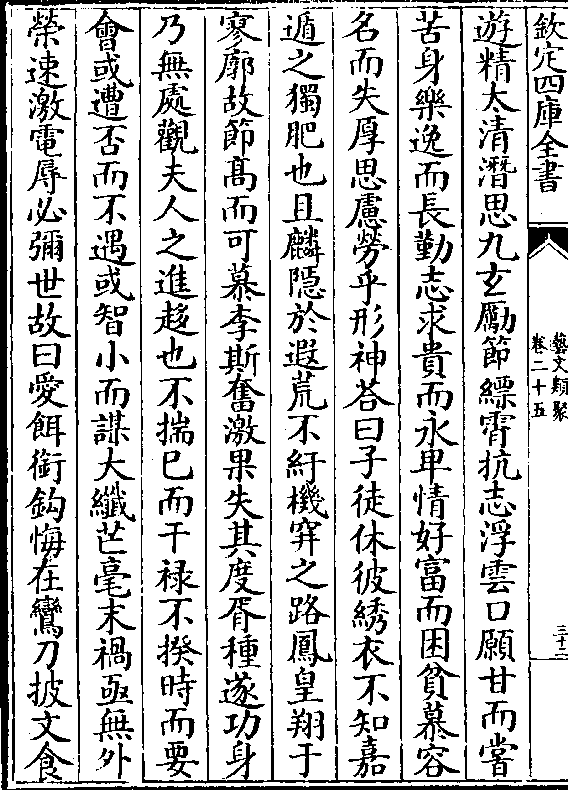 欽定四庫全書
藝文類聚
卷二十五
三十三
遊精太清潛思九玄勵節縹霄抗志浮雲口願甘而嘗
苦身樂逸而長勤志求貴而永卑情好富而困貧慕容
名而失厚思慮勞乎形神荅曰子徒休彼綉衣不知嘉
遁之獨肥也且麟隱於遐荒不紆機穽之路鳳皇翔于
寥廓故節髙而可慕李斯奮激果失其度胥種遂功身
乃無處觀夫人之進趍也不揣已而干祿不揆時而要
會或遭否而不遇或智小而謀大纖芒毫末禍亟無外
榮速激電辱必彌世故曰愛餌銜鈎悔在鸞刀披文食